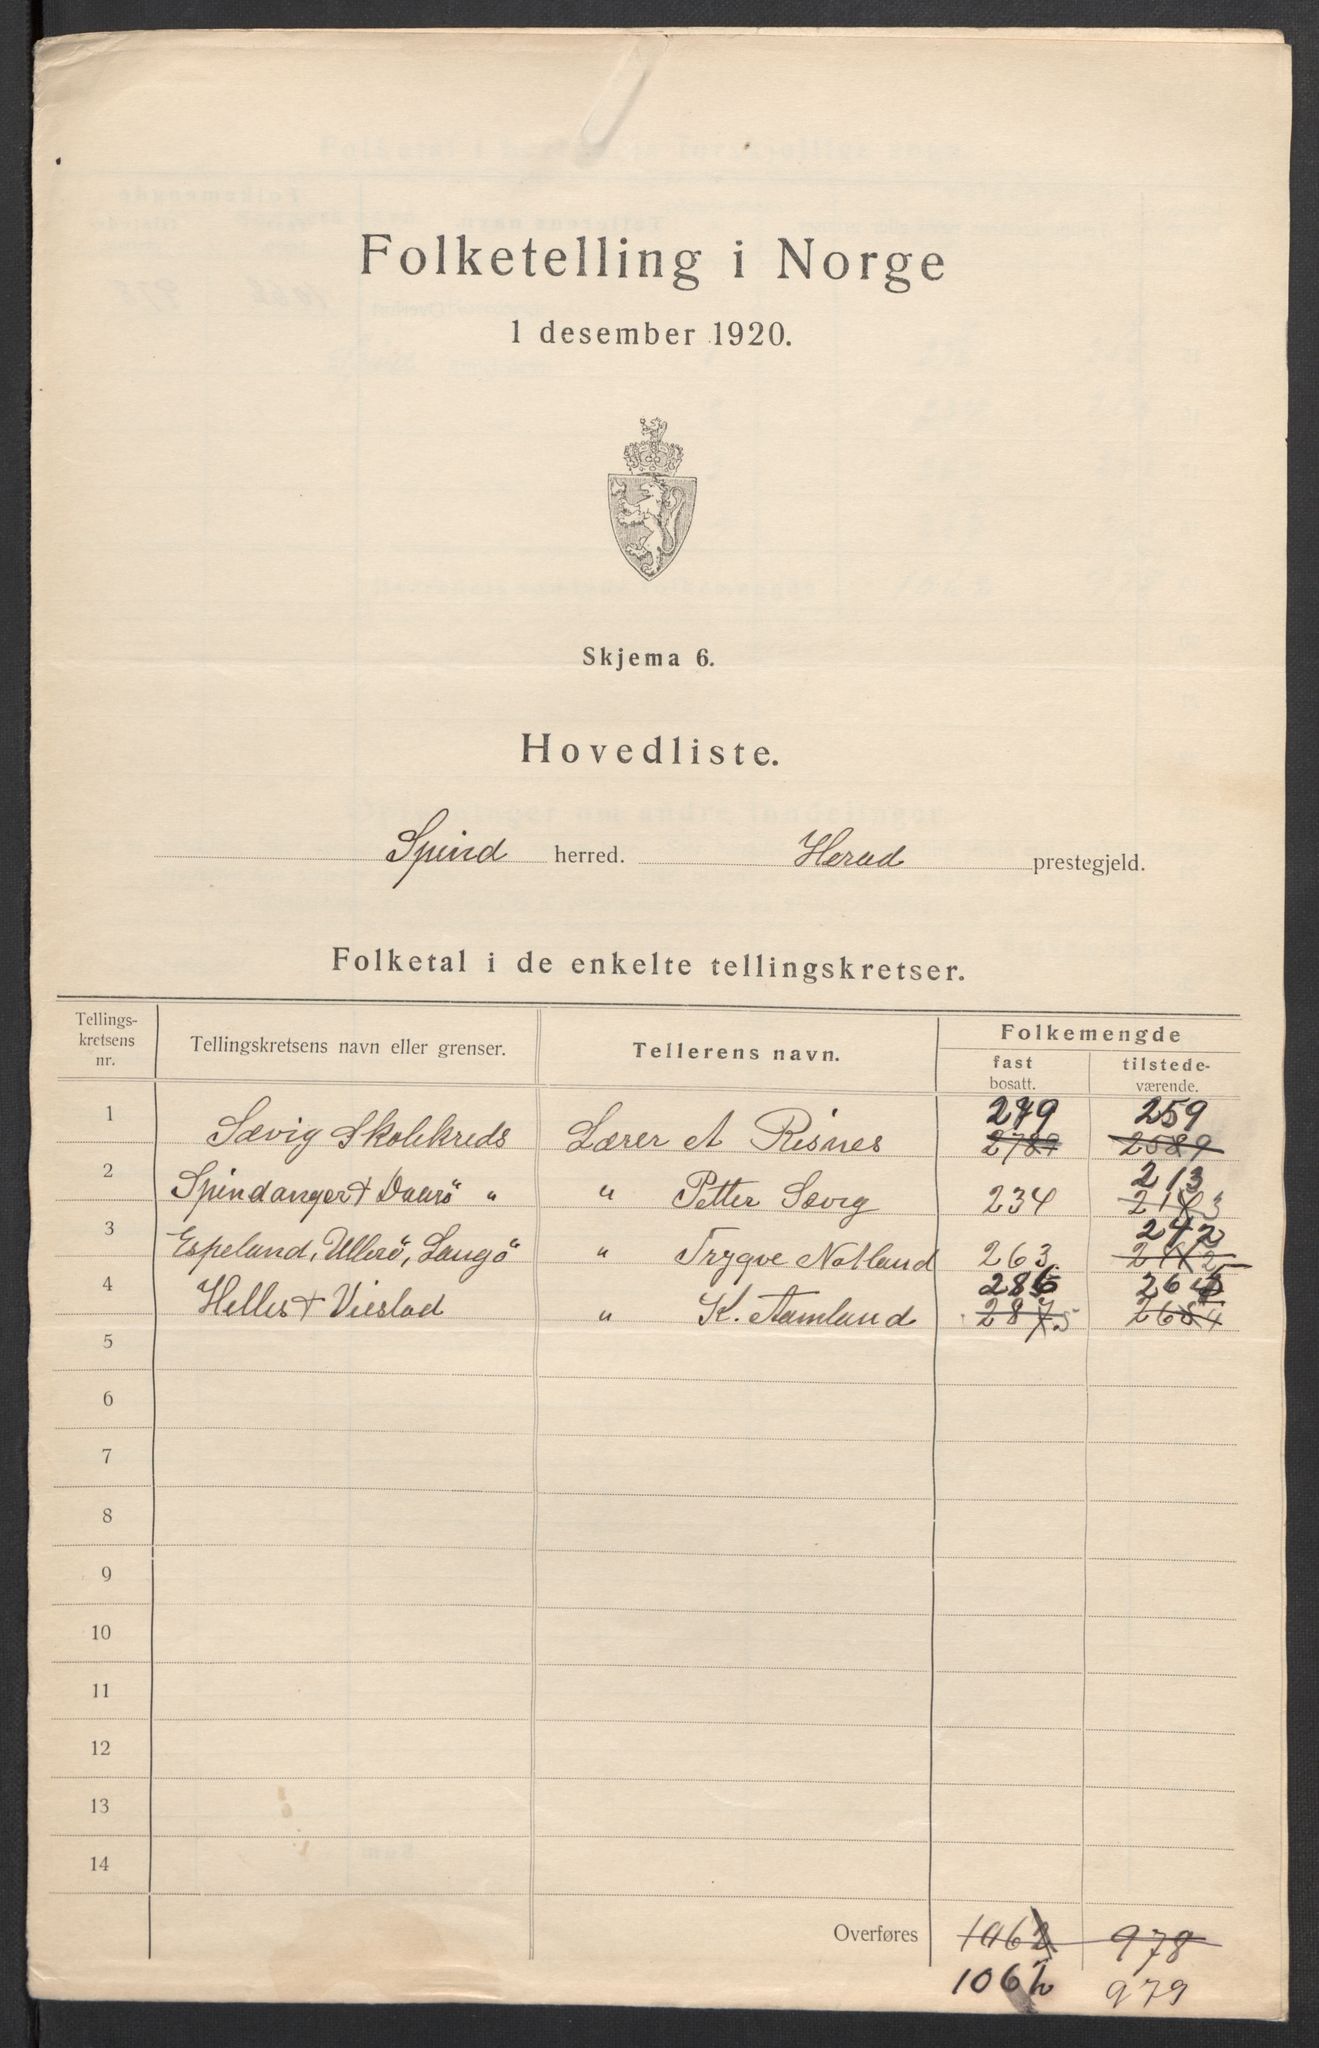 Folketelling i Norge
1 desember 1920.
Skjema 6.
Hovedliste.
Spind herred. Herad prestegjeld.
Folketal i de enkelte tellingskretser.
Tellings-kretsens nr. Tellingskretsens navn eller grenser. Tellerens navn. Folkemengde
fast bosatt. tilstede-værende.
279 259
1 Sævig Skolekreds Lærer A Risnes 2789 2589
213
2 Spindanger + Daarö " " Petter Sævig 234
242
3 Espeland, Ullerö, Langö " Trygve Natland 263
286 265
4 Helles + Vieslad " K. Aamland
5
6
7
8
9
10
11
12
13
14
Overføres 1062 978
1062 979